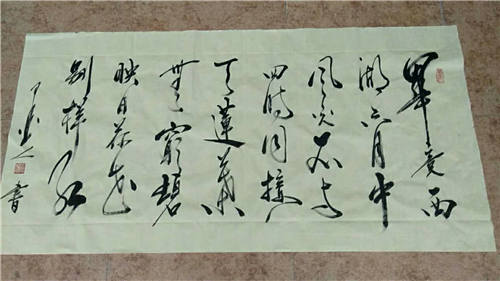 畢竟西
湖六月中
風光不与
四時同接
天蓮葉
無窮碧
映日荷花
别樣紅
書